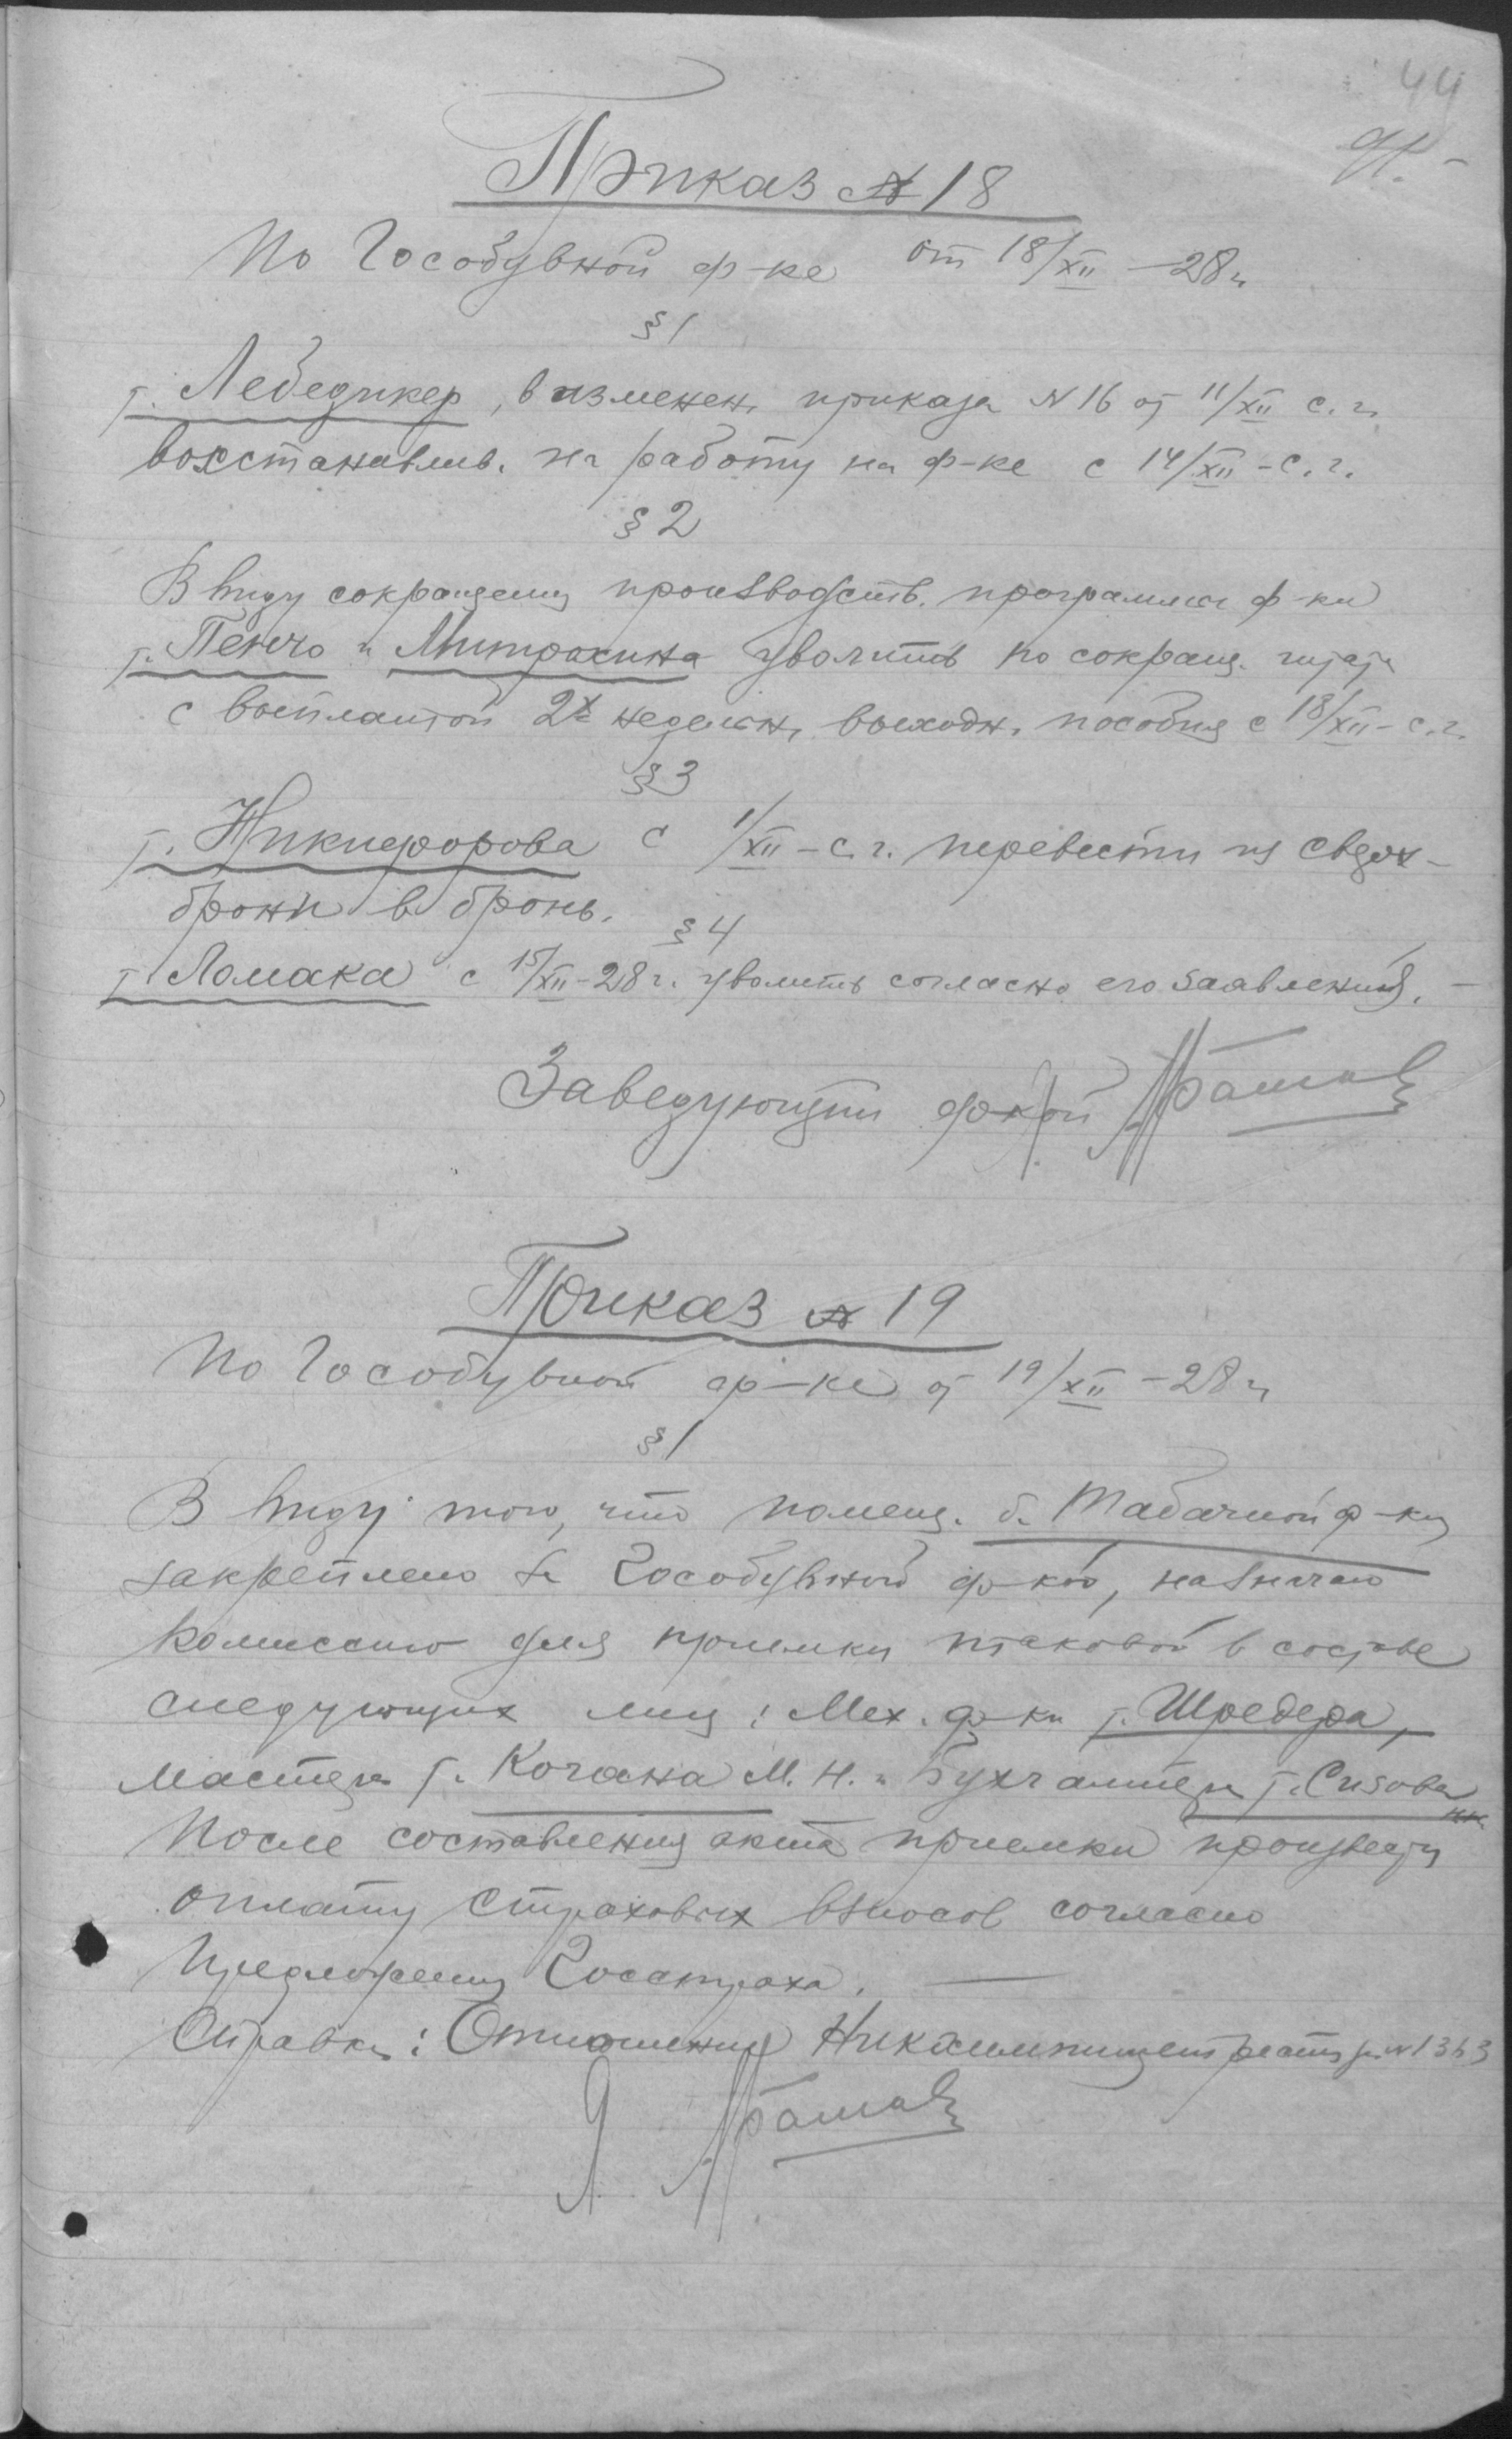 44
Приказ № 18
По Гособувной ф-ке от 18/XII – 28 г.
§ 1
т. Лебединер, в изменен. приказа № 16 от 11/XII с. г.
восстанавлив. на работу на ф-ке с 14/XII – с. г.
§ 2
В виду сокращения производств. программы ф-ки
т. Пенчо и Митрохина уволить по сокращ. штата
с выплатой 2х недельн. выходн. пособия с 18/XII – с. г.
§ 3
т. Никифорова с 1/XII – с. г. перевести из сверх-
брони в бронь.
§ 4
т. Ломака с 15/XII – 28 г. уволить согласно его заявления. –
Заведующий ф-кой
Приказ № 19
По Гособувной ф-ке от 19/XII – 28 г.
§ 1
В виду того, что помещ. б. Табачной ф-ки
закреплено за Гособувной ф-кой, назначаю
комиссию для приемки таковой в составе
следующих лиц: Мех. ф-ки т. Шредера,
мастера т. Кочана М. Н. и Бухгалтера т. Сизова
После составления акта приемки произвести
оплату страховых взносов согласно
предложения Госстраха. —
Справка: Отношения № 1363